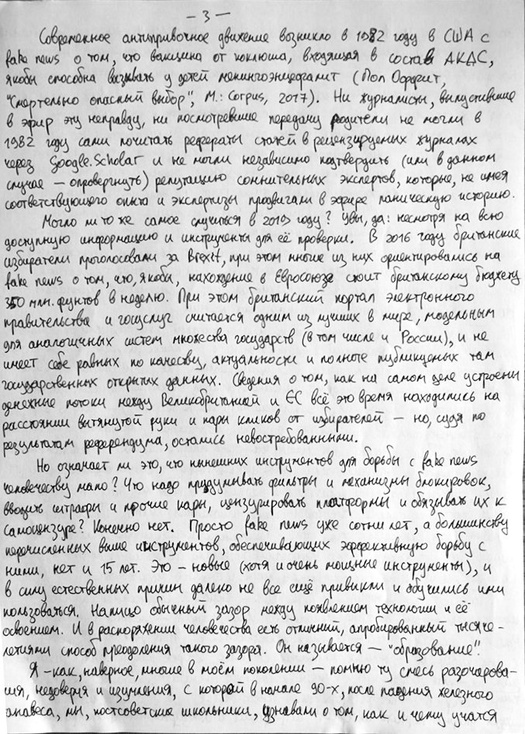 — 3 —
Современное антипрививочное движение возникло в 1982 году в США с
fake news о том, что вакцина от коклюша, входящая в состав АКДС,
якобы способна вызывать у детей менингоэнцефалит (Пол Оффит,
"Смертельно опасный выбор", М.: Corpus, 2017). Ни журналисты, выпустившие
в эфир эту неправду, ни посмотревшие передачу родители не могли в
1982 году сами почитать рефераты статей в рецензируемых журналах
через Google.Scholar и не могли независимо подтвердить (или в данном
случае — опровергнуть) репутацию сомнительных экспертов, которые, не имея
соответствующего опыта и экспертизы продвигали в эфире паническую историю.
Могло ли то же самое случиться в 2019 году? Увы, да: несмотря на всю
доступную информацию и инструменты для её проверки. В 2016 году британские
избиратели проголосовали за Brexit, при этом многие из них ориентировались на
fake news о том, что, якобы, нахождение в Евросоюзе стоит британскому бюджету
350 млн. фунтов в неделю. При этом британский портал электронного
правительства и госуслуг считается одним из лучших в мире, модельным
для аналогичных систем множества государств (в том числе и России), и не
имеет себе равных по качеству, актуальности и полноте публикуемых там
государственных открытых данных. Сведения о том, как на самом деле устроены
денежные потоки между Великобританией и ЕС всё это время находились на
расстоянии вытянутой руки и пары кликов от избирателей — но, судя по
результатам референдума, остались невостребованными.
Но означает ли это, что нынешних инструментов для борьбы с fake news
человечеству мало? Что надо придумывать фильтры и механизмы блокировок,
вводить штрафы и прочие кары, цензурировать платформы и обязывать их к
самоцензуре? Конечно нет. Просто fake news уже сотни лет, а большинству
перечисленных выше инструментов, обеспечивающих эффективную борьбу с
ними, нет и 15 лет. Это — новые (хотя и очень мощные инструменты), и
в силу естественных причин далеко не все ещё привыкли и обучились ими
пользоваться. Налицо обычный зазор между появлением технологии и её
освоением. И в распоряжении человечества есть отличный, апробированный тысяче-
летиями способ преодоления такого зазора. Он называется — "образование".
Я — как, наверное, многие в моём поколении — помню ту смесь разочарова-
ния, недоверия и изумления, с которой в начале 90-х, после падения железного
занавеса, мы, постсоветские школьники, узнавали о том, как и чему учатся